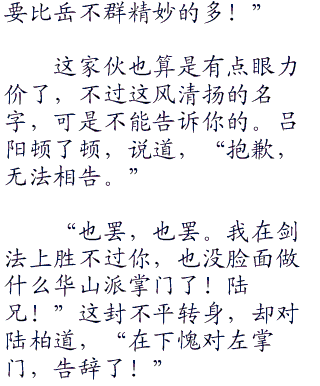 要比岳不群精妙的多！”
这家伙也算是有点眼力
价了，不过这风清扬的名
字，可是不能告诉你的。吕
阳顿了顿，说道，“抱歉，
无法相告。”
“也罢，也罢。我在剑
法上胜不过你，也没脸面做
什么华山派掌门了！陆
兄！”这封不平转身，却对
陆柏道，“在下愧对左掌
门，告辞了！”